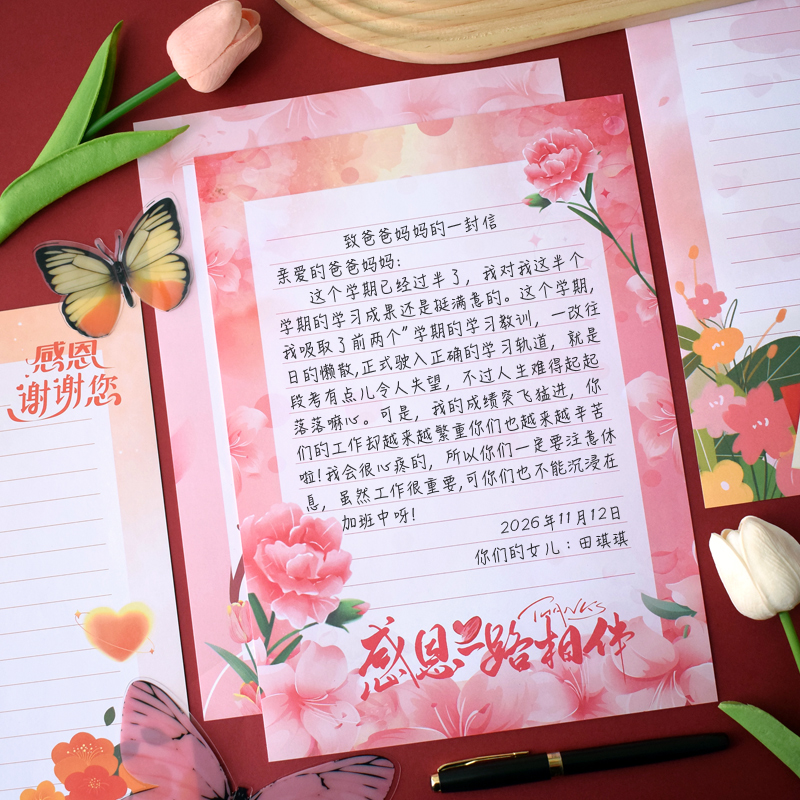 致爸爸妈妈的一封信
亲爱的爸爸妈妈:
这个学期已经过半了,我对我这半个
学期的学习成果还是挺满意的。这个学期,
我吸取了前两个"学期的学习教训,一改往
日的懒散,正式驶入正确的学习轨道,就是
段考有点儿令人失望,不过人生难得起起
落落嘛心。可是,我的成绩突飞猛进,你
们的工作却越来越繁重你们也越来越辛苦
啦!我会很心疼的,所以你们一定要注意休
息,虽然工作很重要,可你们也不能沉浸在
加班中呀!
2026年11月12日
你们的女儿:田琪琪
THANKS
感恩一路相伴
感恩
谢谢您